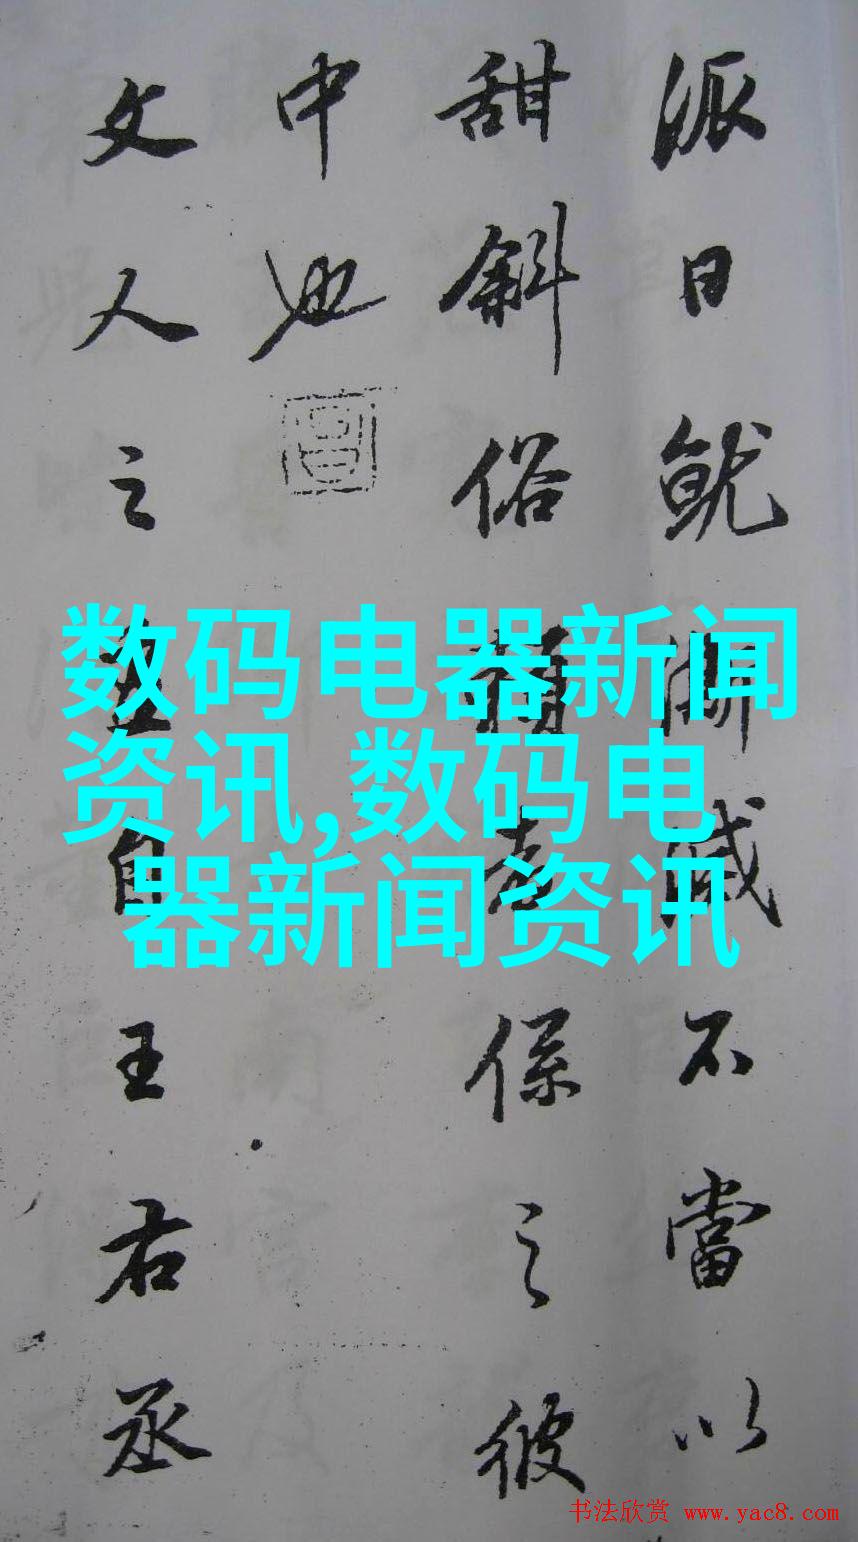 派日就澌滅不當以
甜斜俗賴者係之彼
中也
文人之畫自王右丞
数码电器新闻
资讯,数码电
器新闻资讯
书法欣赏 www.yac8.com